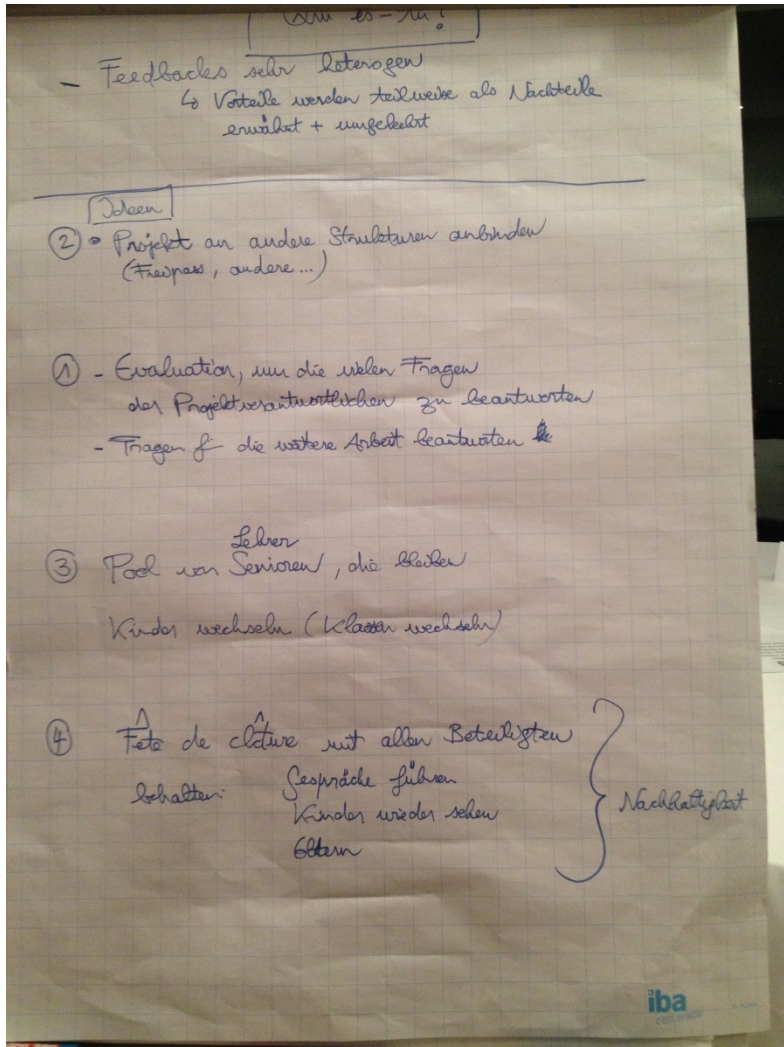 - Feedbacks sehr heterogen
↳ Vorteile werden teilweise als Nachteile
erwähnt + umgekehrt
Ideen
② • Projekt an andere Strukturen anbinden
(Freipass, andere...)
① - Evaluation, um die vielen Fragen
der Projektverantwortlichen zu beantworten
- Fragen f die weitere Arbeit beantworten
Lehrer
③ Pool von Senioren, die bleiben
Kinder wechseln (Klassen wechseln)
④ Fête de clôture mit allen Beteiligten
behalten: Gespräche führen
Kinder wieder sehen
Eltern
Nachhaltigkeit
iba